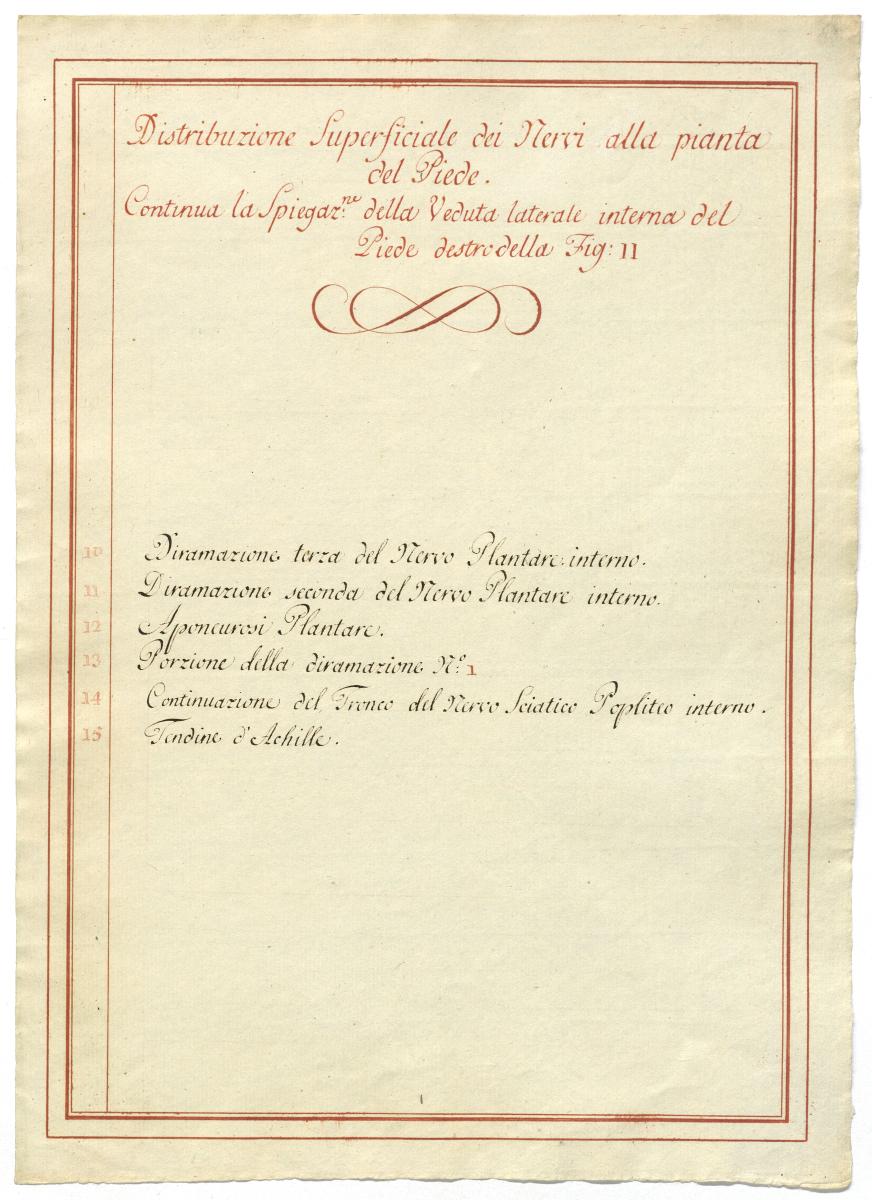 Distribuzione Superficiale dei Nervi alla pianta
del Piede.
Continua la Spiegaz.ne della Veduta laterale interna del
Piede destro della Fig: 11
10 Diramazione terza del Nervo Plantare interno.
11 Diramazione seconda del Nervo Plantare interno.
12 Aponeurosi Plantare.
13 Porzione della diramazione N.o 1
14 Continuazione del Tronco del Nervo Sciatico Popliteo interno.
15 Tendine d'Achille.